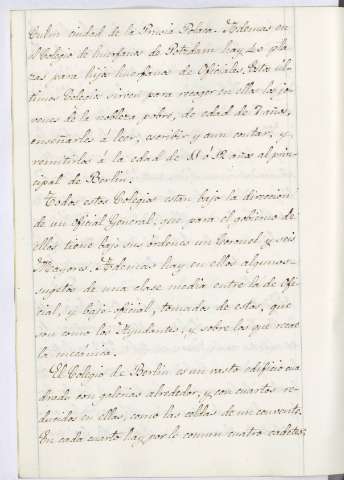 Culm ciudad de la Prusia Polaca. Ademas en
el Colegio de huerfanos de Potzdam hay 40 pla
zas para hijos huerfanos de Oficiales. Estos úl-
timos Colegios sirven para recoger en ellos los jo-
venes de la nobleza pobre, de edad de 7 años,
enseñarles á leer, escribir y aun contar, y
remitirlos á la edad de 11 ó 12 años al prin-
cipal de Berlin.
Todos estos Colegios estan bajo la direccion
de un oficial General, que para el gobierno de
ellos tiene bajo sus ordenes un Coronel, y seis
Mayores. Ademas hay en ellos algunos
sugetos de una clase media entre la de Ofi-
cial, y bajo oficial, tomados de estos, que
son como los Ayudantes, y sobre los que recae
la mecánica.
El Colegio de Berlin es un vasto edificio cua
drado con galerias alrededor, y con cuartos re-
ducidos en ellas, como las celdas de un convento.
En cada cuarto hay por lo comun cuatro cadetes,